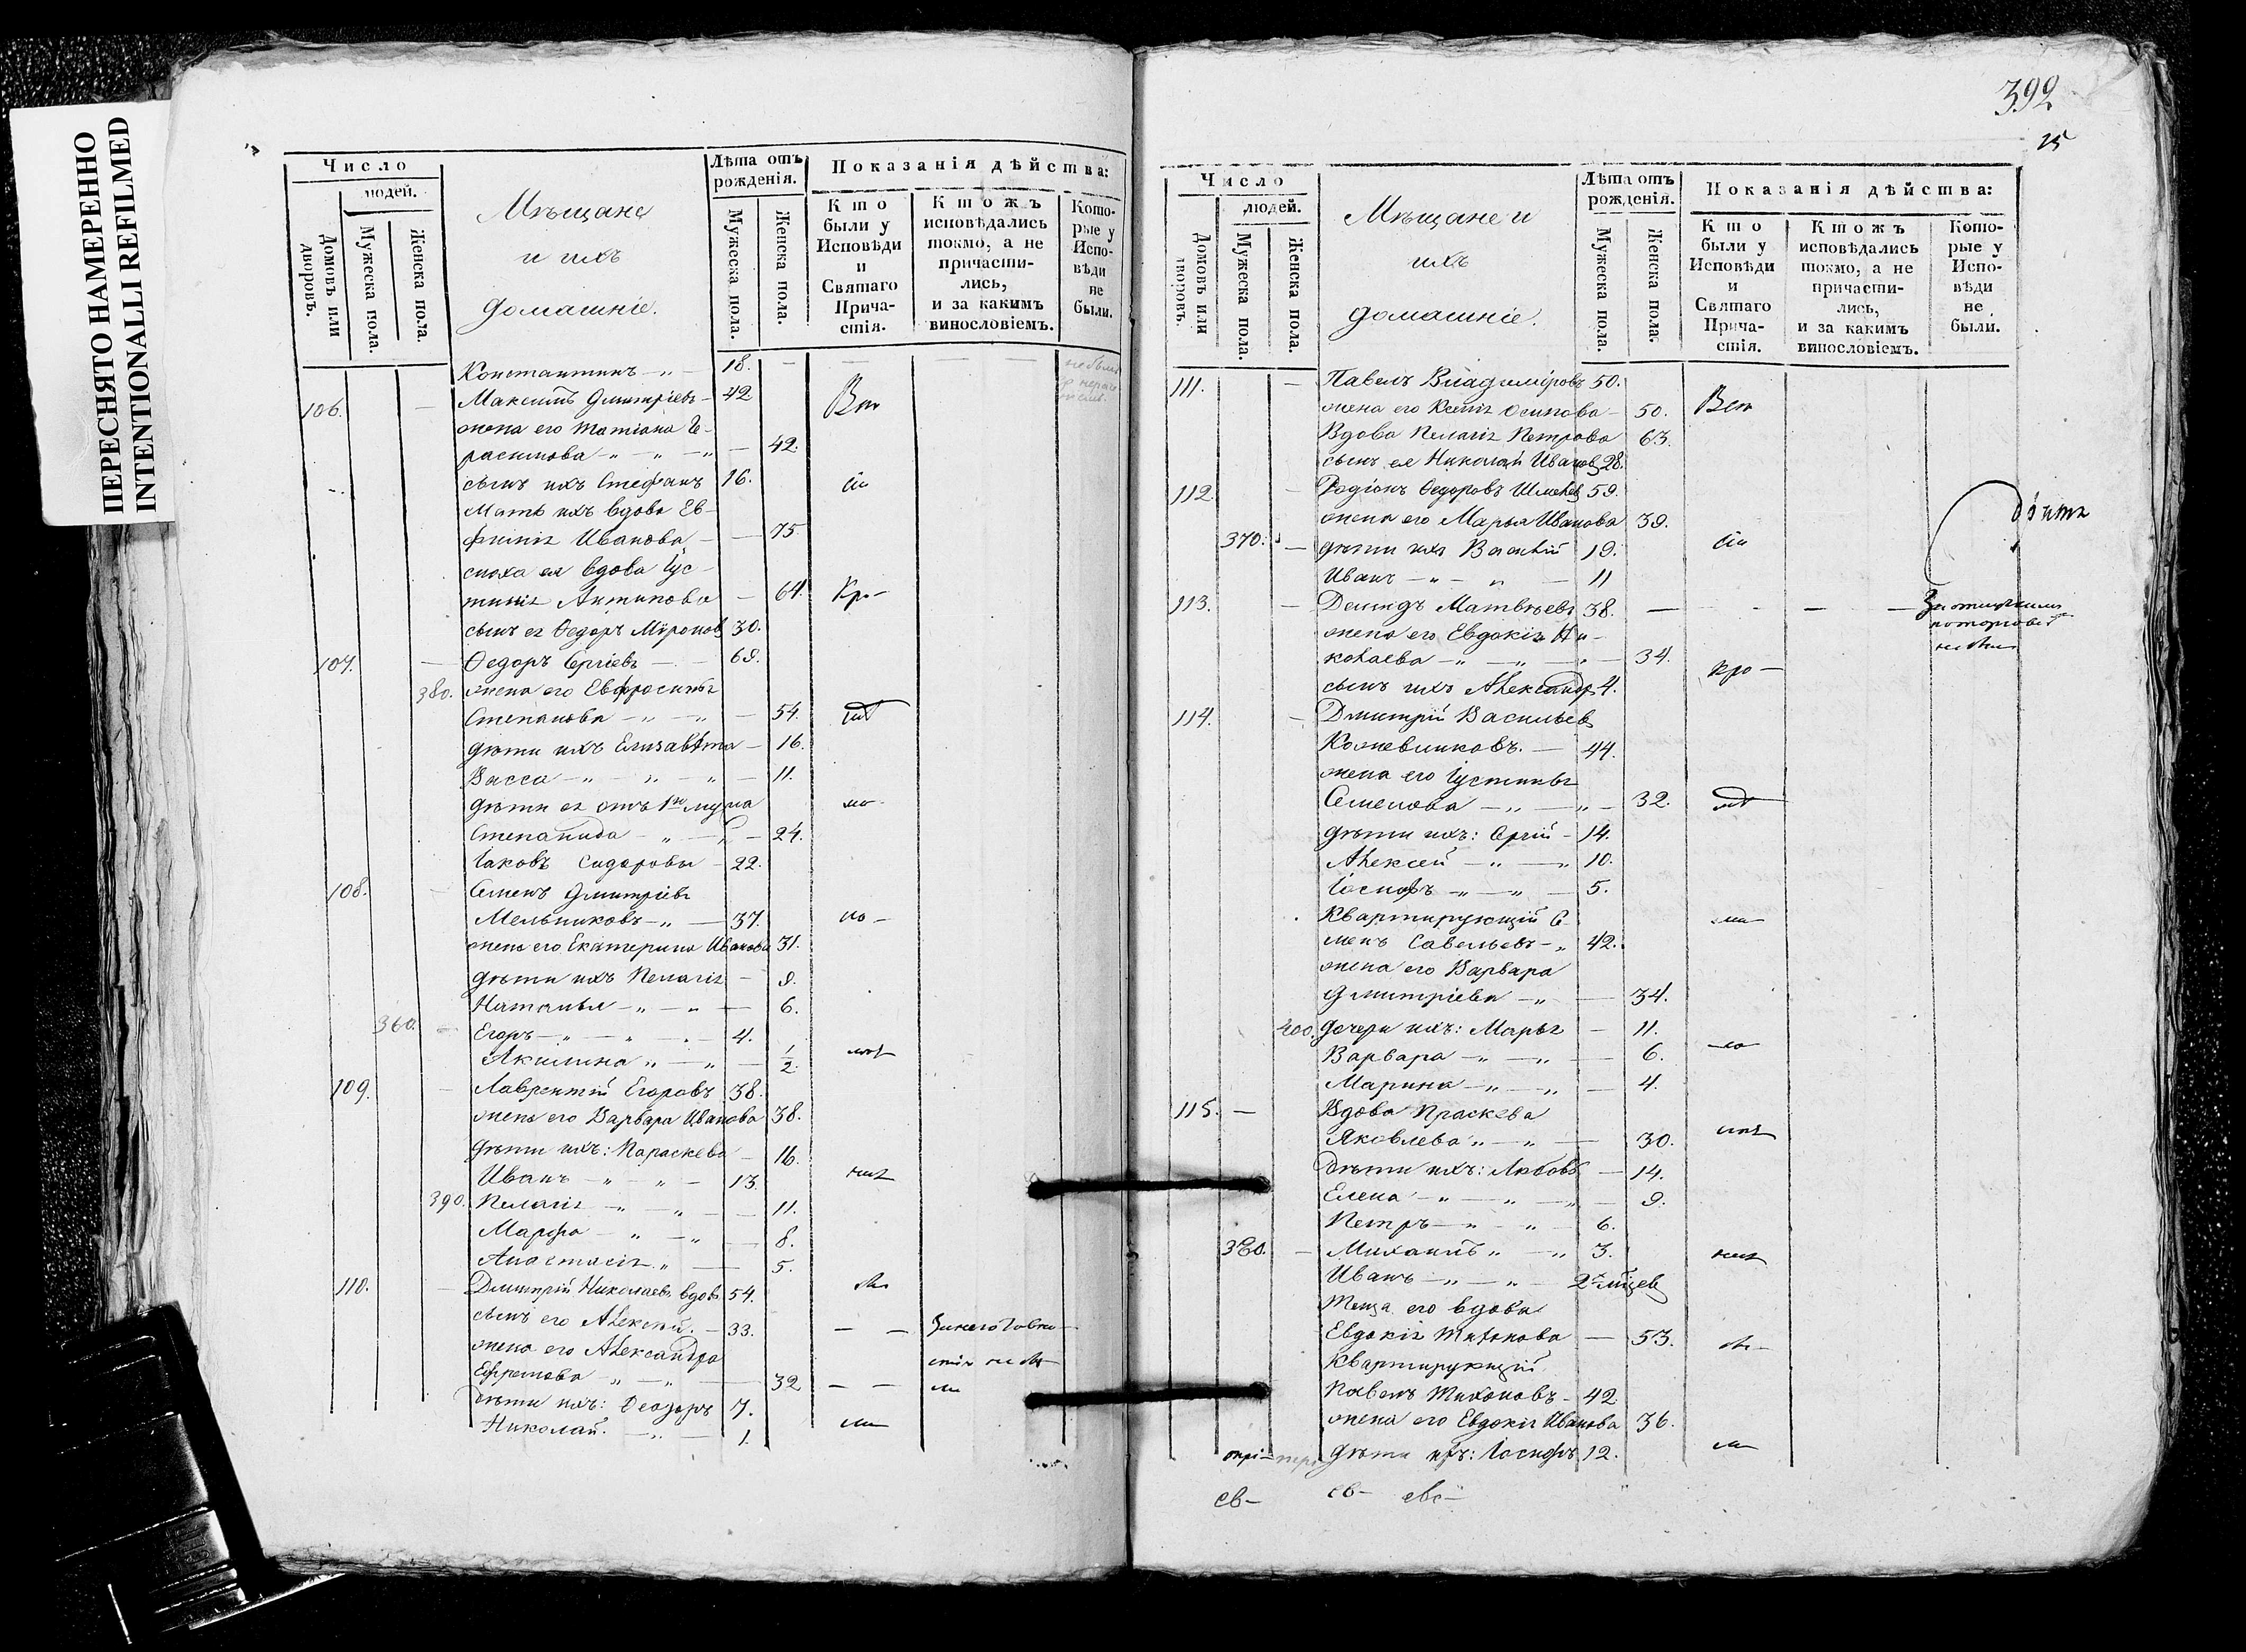 ПЕРЕСНЯТО НАМЕРЕННО
INTENTIONALLI REFILMED
Число
людей.
Домовъ или дворовъ.
Мужеска пола.
Женска пола.
Мѣщане
и ихъ
домашніе.
Лѣта отъ рожденія.
Мужеска пола.
Женска пола.
Показанія дѣйства:
Кто были у Исповѣди и Святаго Причастія.
Ктожъ исповѣдались токмо, а не причастились, и за какимъ винословіемъ.
Которые у Исповѣди не были.
Константинъ — „ — 18. —
106. Максимъ Дмитріевъ — 42
жена его Татіана Ге-
расимова — „ — „ — „ — 42.
сынъ ихъ Стефанъ 16.
Мать ихъ вдова Ев-
фимія Иванова — — 75.
сноха ея вдова Іус-
тинія Антипова — 64. Кро-
сынъ ея Ѳедоръ Мѵроновъ 30.
107. Ѳедоръ Сергіевъ — 68.
380. жена его Евфросинья
Степанова — „ — „ — 54.
дѣти ихъ Елизавѣта — 16.
Васса — „ — „ — „ — 11.
дѣти ея отъ 1го мужа
Степанида — „ — „ — 24.
Іаковъ Сидоровы — 22.
108. Семенъ Дмитріевъ
Мельниковъ — „ — 37.
жена его Екатерина Иванова 31.
дѣти ихъ Пелагія — 9.
Наталья — „ — „ — 6.
360. Егоръ — „ — „ — 4.
Акилина „ — „ — 1/2
109. Лаврентій Егоровъ 38.
жена его Варвара Иванова 38.
дѣти ихъ: Параскева — 16.
Иванъ — „ — „ — 13.
390. Пелагія — „ — „ — 11.
Марфа — „ — „ — 8.
Анастасія „ — 5.
110. Дмитрій Николаевъ вдов. 54.
сынъ его Алексѣй. — 33. — —
жена его Александра
Ефремова „ — „ — 32 — —
дѣти ихъ: Ѳеодоръ 7.
Николай. — „ — 1.
392
Число
людей.
Домовъ или дворовъ.
Мужеска пола.
Женска пола.
Мѣщане и
ихъ
домашніе.
Лѣта отъ рожденія.
Мужеска пола.
Женска пола.
Показанія дѣйства:
Кто были у Исповѣди и Святаго Причастія.
Ктожъ исповѣдались токмо, а не причастились, и за какимъ винословіемъ.
Которые у Исповѣди не были.
111. — Павелъ Владиміровъ 50.
жена его Ксенія Осипова — 50.
Вдова Пелагія Петрова 63.
сынъ ея Николай Ивановъ 28.
112. — Родіонъ Ѳедоровъ 59.
жена его Марья Иванова 39.
370. — дѣти ихъ Василій 19.
Иванъ — „ — „ — 11
113. — Демидъ Матвѣевъ 38. — — — —
жена его Евдокія Ни-
колаева — „ — „ — „ — 34. Кро —
сынъ ихъ Александръ 4.
114. — Дмитрій Васильевъ
Кожевниковъ. — 44.
жена его Іустинья
Семенова — „ — „ — 32.
дѣти ихъ: Сергій — 14.
Алексей — „ — „ 10.
Іосифъ — „ — „ — 5.
Квартирующій Се
менъ Савельевъ — „ 42.
жена его Варвара
Дмитріева — „ — 34.
400. дочери ихъ: Марья — 11.
Варвара — „ — „ — 6.
Марина — „ — „ — 4.
115. — Вдова Праскева
Яковлева „ — „ — 30.
дѣти ихъ: Любовь — 14.
Елена — „ — „ — „ — 9.
Петръ — „ — „ — 6.
380. — Михаилъ „ — „ 3.
Иванъ — „ — „ —
Теща его вдова
Евдокія Титкова — 53.
Квартирующій
Павелъ Тихоновъ — 42
жена его Евдокія Иванова 36.
дѣти ихъ: Іосифъ 12.